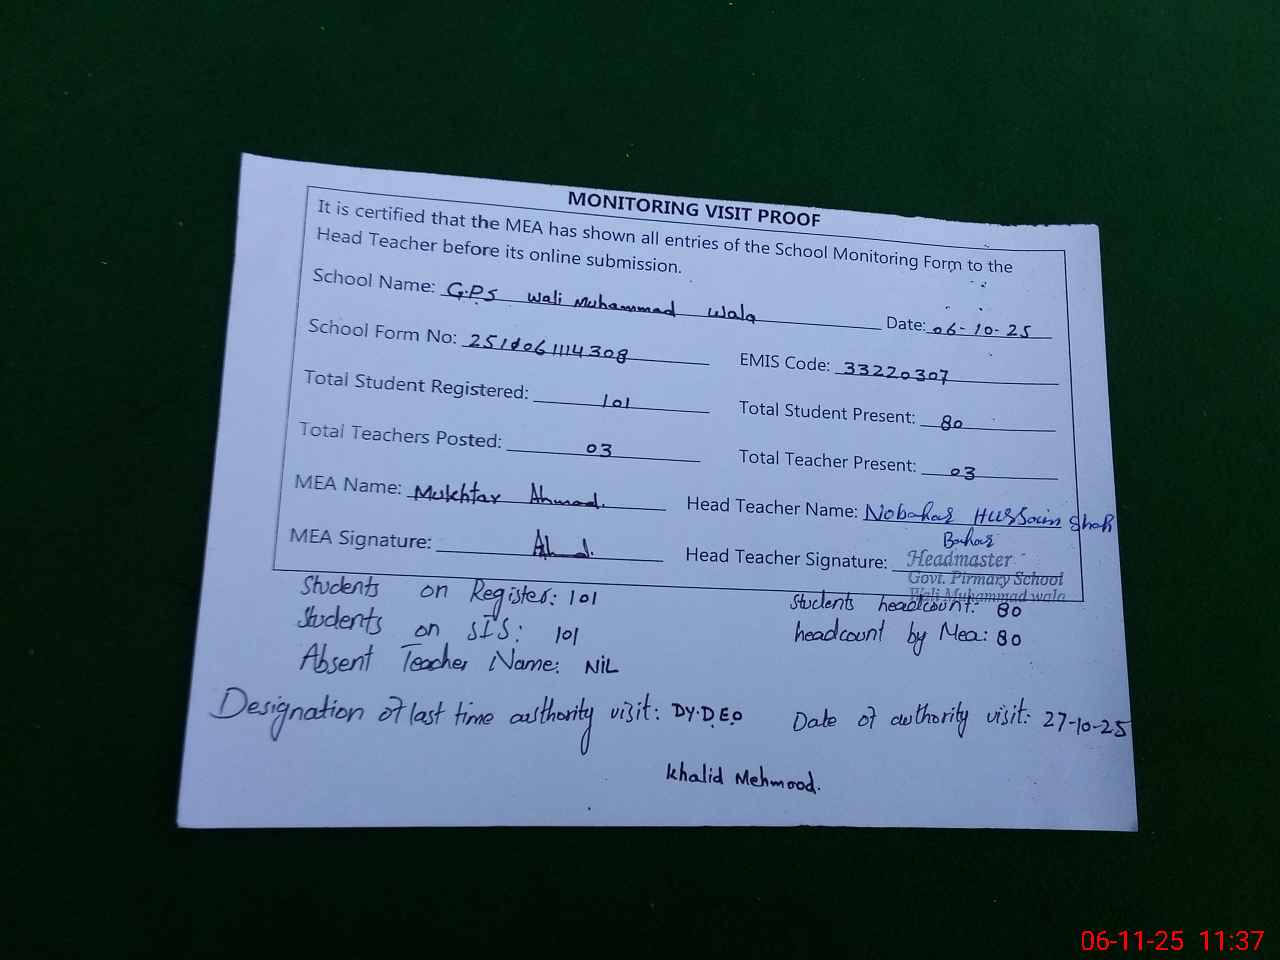 MONITORING VISIT PROOF
It is certified that the MEA has shown all entries of the School Monitoring Form to the
Head Teacher before its online submission.
School Name: G.P.S Wali Muhammad Wala Date: 06-10-25
School Form No: 2511061114308 EMIS Code: 33220307
Total Student Registered: 101 Total Student Present: 80
Total Teachers Posted: 03 Total Teacher Present: 03
MEA Name: Mukhtar Ahmad. Head Teacher Name: Nobahar Hussain Shah
MEA Signature: Head Teacher Signature: Bahar
Headmaster
Govt. Pirmary School
Wali Muhammad wala
Students on Register: 101 Students headcount: 80
Students on SIS: 101 headcount by Mea: 80
Absent Teacher Name: NiL
Designation of last time authority visit: DY.D.E.O Date of authority visit: 27-10-25
Khalid Mehmood.
06-11-25 11:37